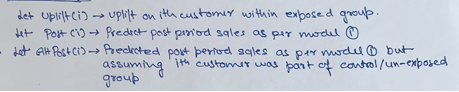 let Uplift(i) → uplift on ith customer within exposed group.
let Post(i) → Predict post period sales as per model ①
• let AltPost(i) → Predicted post period sales as per model ① but
assuming ith customer was part of control/un-exposed
group